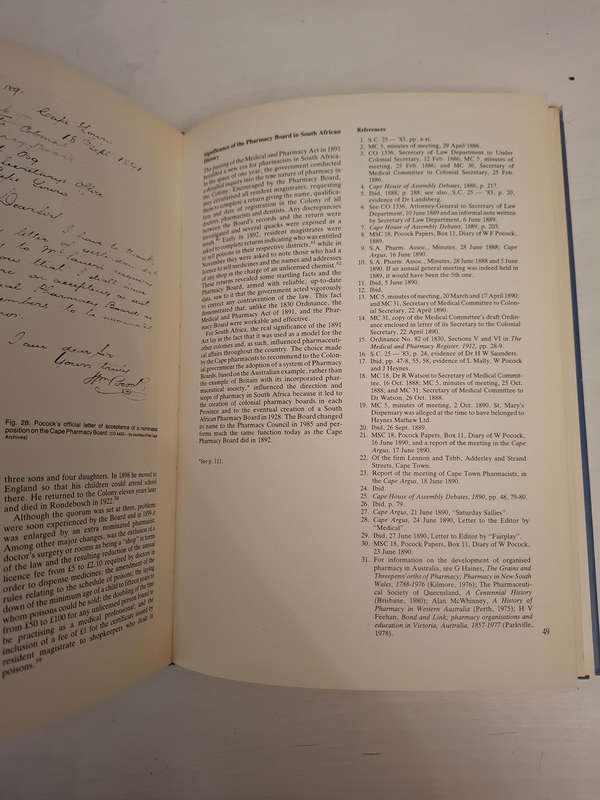 1891
16 Sept 1891
Dear Sir, I have to thank
letter of yesterday
I am dear Sir
Yours truly
Fig. 28: Pocock's official letter of acceptance of a nominated
position on the Cape Pharmacy Board.
Archives)
three sons and four daughters. In 1898 he moved to
England so that his children could attend school
there. He returned to the Colony eleven years later
and died in Rondebosch in 1922.
Although the quorum was set at three, problems
were soon experienced by the Board and in 1899 it
was enlarged by an extra nominated pharmacist.
Among other major changes, was the exclusion of a
doctor's surgery or rooms as being a "shop" in terms
of the law and the resulting reduction of the annual
licence fee from £5 to £2.10 required by doctors in
order to dispense medicines; the amendment of the
rules relating to the schedule of poisons; the laying
down of the minimum age of a child to fifteen years to
whom poisons could be sold; the doubling of the fine
from £50 to £100 for any unlicensed person found to
be practising as a medical professional; and the
inclusion of a fee of £1 for the certificate issued by
resident magistrate to shopkeepers who dealt in
poisons.
Significance of the Pharmacy Board in South African
History
The passing of the Medical and Pharmacy Act in 1891
heralded a new era for pharmacists in South Africa.
In the space of one year, the government conducted
a detailed inquiry into the true nature of pharmacy in
the Colony. Encouraged by the Pharmacy Board,
they circularized all resident magistrates, requesting
them to complete a return giving the name, qualifica-
tion and date of registration in the Colony of all
doctors, pharmacists and dentists. Any discrepancies
between the Board's records and the return were
investigated and several quacks were exposed as a
result. Early in 1892, resident magistrates were
asked to complete returns indicating who was entitled
to sell poisons in their respective districts, while in
November they were asked to note those who had a
licence to sell medicines and the names and addresses
of any shop in the charge of an unlicensed chemist.
These returns revealed some startling facts and the
Pharmacy Board, armed with reliable, up-to-date
data, saw to it that the government acted vigorously
to correct any contravention of the law. This fact
demonstrated that, unlike the 1830 Ordinance, the
Medical and Pharmacy Act of 1891, and the Phar-
macy Board were workable and effective.
For South Africa, the real significance of the 1891
Act lay in the fact that it was used as a model for the
other colonies and, as such, influenced pharmaceuti-
cal affairs throughout the country. The choice made
by the Cape pharmacists to recommend to the Colon-
ial government the adoption of a system of Pharmacy
Boards, based on the Australian example, rather than
the example of Britain with its incorporated phar-
maceutical society,* influenced the direction and
scope of pharmacy in South Africa because it led to
the creation of colonial pharmacy boards in each
Province and to the eventual creation of a South
African Pharmacy Board in 1928. The Board changed
its name to the Pharmacy Council in 1985 and per-
forms much the same function today as the Cape
Pharmacy Board did in 1892.
*See p. 111.
References
1. S.C. 25 — '83, pp. x-xi.
2. MC 5, minutes of meeting, 29 April 1886.
3. CO 1336, Secretary of Law Department to Under
Colonial Secretary, 12 Feb. 1886; MC 5, minutes of
meeting, 25 Feb. 1886; and MC 30, Secretary of
Medical Committee to Colonial Secretary, 25 Feb.
1886.
4. Cape House of Assembly Debates, 1886, p. 217.
5. Ibid, 1888, p. 288; see also, S.C. 25 — '83, p. 20,
evidence of Dr Landsberg.
6. See CO 1336, Attorney-General to Secretary of Law
Department, 10 June 1889 and an informal note written
by Secretary of Law Department, 6 June 1889.
7. Cape House of Assembly Debates, 1889, p. 205.
8. MSC 18, Pocock Papers, Box 11, Diary of W F Pocock,
1889.
9. S.A. Pharm. Assoc., Minutes, 28 June 1888; Cape
Argus, 16 June 1890.
10. S.A. Pharm. Assoc., Minutes, 28 June 1888 and 5 June
1890. If an annual general meeting was indeed held in
1889, it would have been the 5th one.
11. Ibid, 5 June 1890.
12. Ibid.
13. MC 5, minutes of meeting, 20 March and 17 April 1890;
and MC 31, Secretary of Medical Committee to Colon-
ial Secretary, 22 April 1890.
14. MC 31, copy of the Medical Committee's draft Ordin-
ance enclosed in letter of its Secretary to the Colonial
Secretary, 22 April 1890.
15. Ordinance No. 82 of 1830, Sections V and VI in The
Medical and Pharmacy Register, 1912, pp. 28-9.
16. S.C. 25 — '83, p. 24, evidence of Dr H W Saunders.
17. Ibid, pp. 47-8, 55, 58, evidence of L Mally, W Pocock
and J Heynes.
18. MC 18, Dr R Watson to Secretary of Medical Commit-
tee, 16 Oct. 1888; MC 5, minutes of meeting, 25 Oct.
1888; and MC 31, Secretary of Medical Committee to
Dr Watson, 26 Oct. 1888.
19. MC 5, minutes of meeting, 2 Oct. 1890. St. Mary's
Dispensary was alleged at the time to have belonged to
Heynes Mathew Ltd.
20. Ibid, 26 Sept. 1889.
21. MSC 18, Pocock Papers, Box 11, Diary of W Pocock,
16 June 1890; and a report of the meeting in the Cape
Argus, 17 June 1890.
22. Of the firm Lennon and Tebb, Adderley and Strand
Streets, Cape Town.
23. Report of the meeting of Cape Town Pharmacists, in
the Cape Argus, 18 June 1890.
24. Ibid.
25. Cape House of Assembly Debates, 1890, pp. 48, 79-80.
26. Ibid, p. 79.
27. Cape Argus, 21 June 1890, "Saturday Sallies".
28. Cape Argus, 24 June 1890, Letter to the Editor by
"Medical".
29. Ibid, 27 June 1890, Letter to Editor by "Fairplay".
30. MSC 18, Pocock Papers, Box 11, Diary of W Pocock,
23 June 1890.
31. For information on the development of organised
pharmacy in Australia, see G Haines, The Grains and
Threepenn'orths of Pharmacy, Pharmacy in New South
Wales, 1788-1976 (Kilmore, 1976); The Pharmaceuti-
cal Society of Queensland, A Centennial History
(Brisbane, 1980); Alan McWhinney, A History of
Pharmacy in Western Australia (Perth, 1975); H V
Feehan, Bond and Link; pharmacy organisations and
education in Victoria, Australia, 1857-1977 (Parkville,
1978).
49